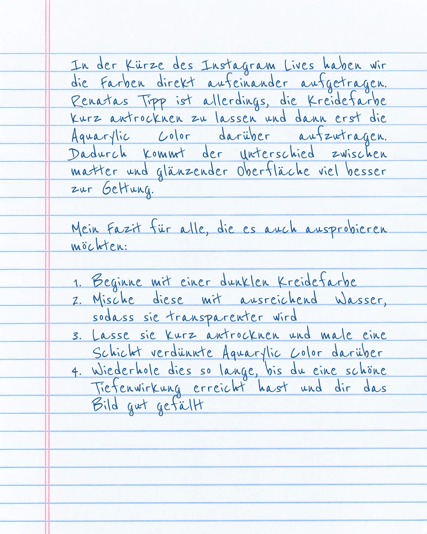 In der Kürze des Instagram Lives haben wir
die Farben direkt aufeinander aufgetragen.
Renatas Tipp ist allerdings, die Kreidefarbe
kurz antrocknen zu lassen und dann erst die
Aquarylic Color darüber aufzutragen.
Dadurch kommt der Unterschied zwischen
matter und glänzender Oberfläche viel besser
zur Geltung.

Mein Fazit für alle, die es auch ausprobieren
möchten:

1. Beginne mit einer dunklen Kreidefarbe
2. Mische diese mit ausreichend Wasser,
sodass sie transparenter wird
3. Lasse sie kurz antrocknen und male eine
Schicht verdünnte Aquarylic Color darüber
4. Wiederhole dies so lange, bis du eine schöne
Tiefenwirkung erreicht hast und dir das
Bild gut gefällt